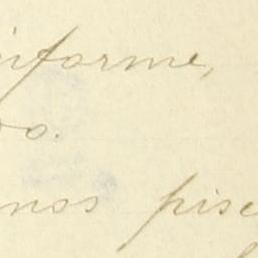 iforme,
oo.
nos pisc